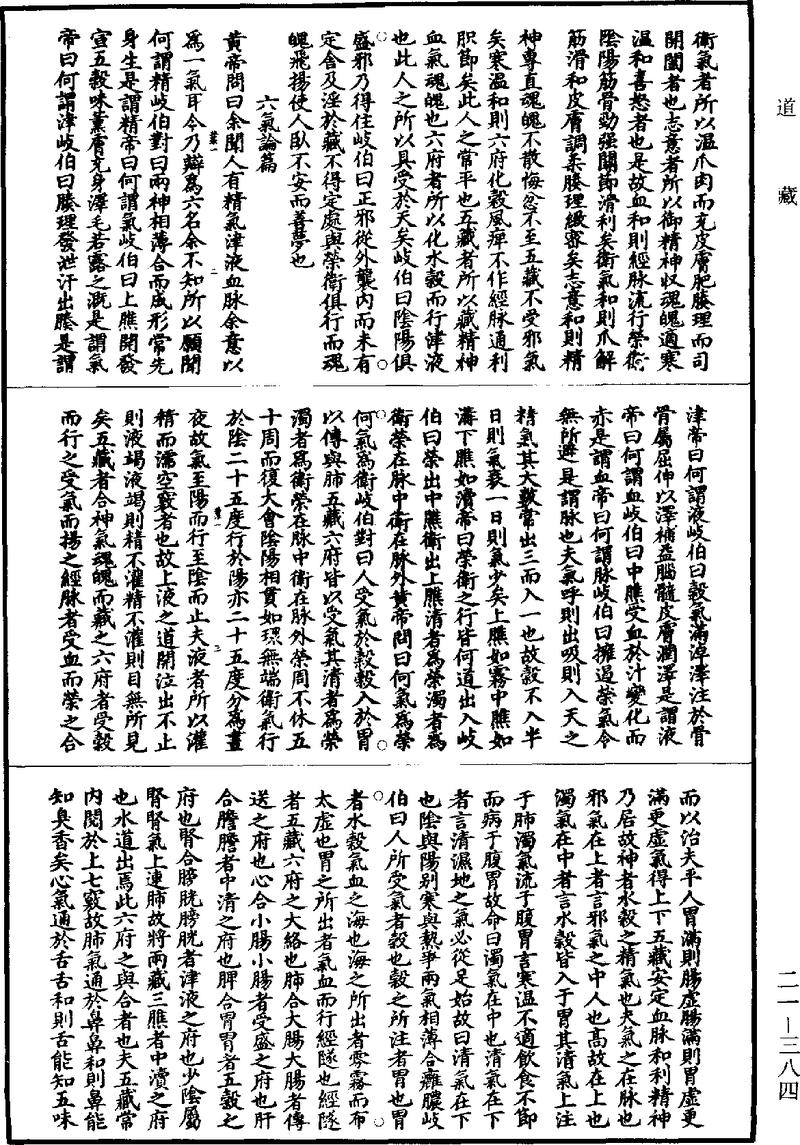 道藏
衛氣者所以温爪肉而充皮膚肥腠理而司
開闔者也志意者所以御精神収魂魄適寒
温和喜怒者也是故血和則經脉流行榮術
陰陽筋骨勁强關節滑利矣衛氣和則爪解
筋滑和皮膚調柔腠理緻密矣志意和則精
神專直魂魄不散悔忿不至五藏不受邪氣
矣寒温和則六府化穀風痺不作經脉通利
胑節矣此人之常平也五藏者所以藏精神
血氣魂魄也六府者所以化水穀而行津液
也此人之所以具受於天矣岐伯曰陰陽俱
盛邪乃得住岐伯曰正邪從外襲内而未有
定舍及淫於藏不得定處與榮衛俱行而魂
魄飛揚使人卧不安而善夢也
六氣論篇
黄帝問曰余聞人有精氣津液血脉余意以
爲一氣耳今乃辯爲六名余不知所以願聞
何謂精岐伯對曰兩神相薄合而成形常先
身生是謂精帝曰何謂氣岐伯曰上膲開發
宣五穀味薰膚充身澤毛若露之溉是謂氣
帝曰何謂津岐伯曰腠理發泄汗出腠是謂
津帝曰何謂液岐伯曰穀氣滿淖澤注於骨
骨屬屈伸以澤補益腦髓皮膚潤澤是謂液
帝曰何謂血岐伯曰中膲受血於汁變化而
赤是謂血帝曰何謂脉岐伯曰擁遏榮氣令
無所避是謂脉也夫氣呼則出吸則入天之
精氣其大數常出三而入一也故穀不入半
日則氣衰一日則氣少矣上膲如霧中膲如
溝下膲如瀆帝曰榮衛之行皆何道出入岐
伯曰榮出中膲衛出上膲清者爲榮濁者爲
衛榮在脉中衛在脉外黄帝問曰何氣爲榮
何氣爲衛岐伯對曰人受氣於穀穀入於胃
以傳與肺五藏六府皆以受氣其清者爲榮
濁者爲衛榮在脉中衛在脉外榮周不休五
十周而復大會陰陽相貫如環無端衛氣行
於陰二十五度行於陽亦二十五度分爲晝
夜故氣至陽而行至陰而止夫液者所以灌
精而濡空竅者也故上液之道開泣出不止
則液竭液竭則精不灌精不灌則目無所見
矣五藏者合神氣魂魄而藏之六府者受穀
而行之受氣而揚之經脉者受血而榮之合
而以治夫平人胃滿則腸虚腸滿則胃虚更
滿更虚氣得上下五藏安定血脉和利精神
乃居故神者水穀之精氣也夫氣之在脉也
邪氣在上者言邪氣之中人也高故在上也
濁氣在中者言水穀皆入于胃其清氣上注
于肺濁氣流于腹胃言寒温不適飲食不節
而病于腹胃故命曰濁氣在中也清氣在下
者言清濕地之氣必從足始故曰清氣在下
也陰與陽别寒與熱爭兩氣相薄合癰膿岐
伯曰人所受氣者穀也穀之所注者胃也胃
者水穀氣血之海也海之所出者雲霧而布
太虚也胃之所出者氣血而行經隧也經隧
者五藏六府之大絡也肺合大腸大腸者傳
送之府也心合小腸小腸者受盛之府也肝
合膽膽者中清之府也脾合胃胃者五穀之
府也腎合膀胱膀胱者津液之府也少陰屬
腎腎氣上連肺故將兩藏三膲者中瀆之府
也水道出焉此六府之與合者也夫五藏常
内閲於上七竅故肺氣通於鼻鼻和則鼻能
知臭香矣心氣通於舌舌和則舌能知五味
二一—三八四